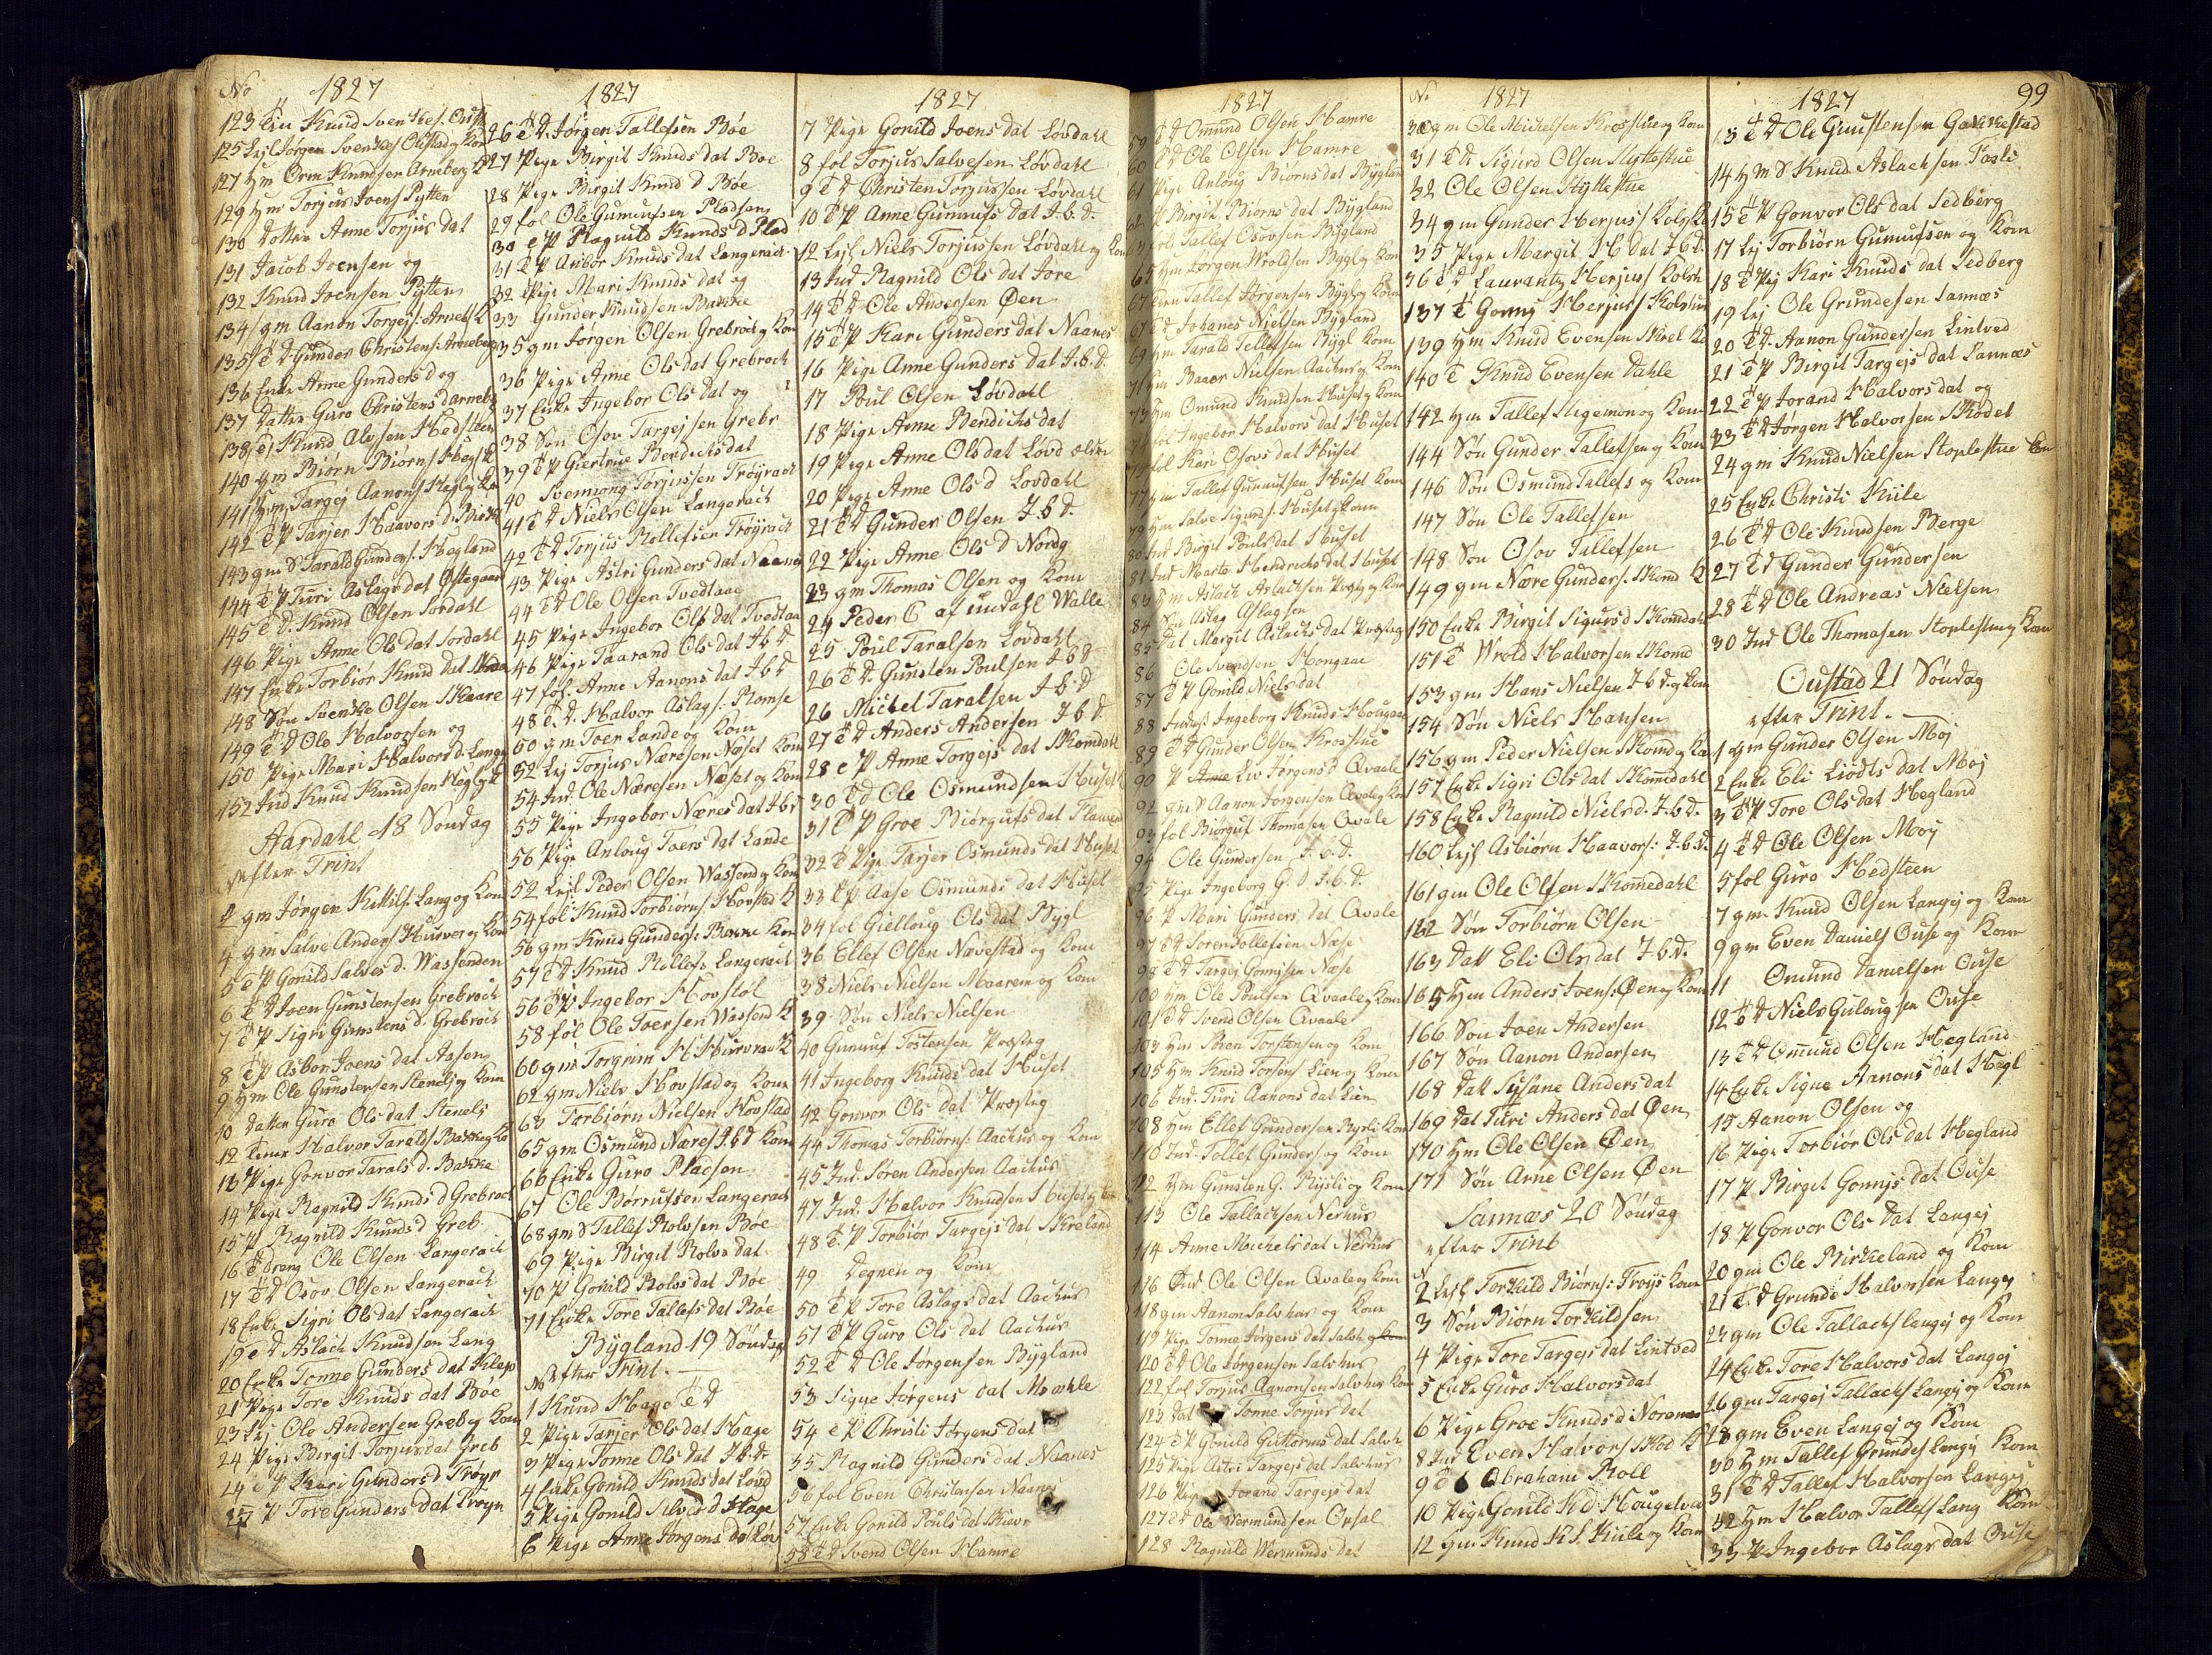 No 1827
123 Knud Svenkes. Oust
125 Lejl Jørgen Svenkes Olestad og Kon
127 hm Orm Knudsen Arneberg
129 hm Torjus Joens Pytten
130 Datter Anne Torjus dat
131 Jacob Joensen og
132 Knud Joensen Pytten
134 gm Aanon Torgejs: Arneb K
135 T D Gunder Christens: Arneberg
136 Enke Anne Gunders d og
137 Datter Guro Christens d Arneb
138 Knud Alvsen Hedsteen
140 gm Biørn Biørns Hegl K
141 hm Targej Aanons Hegl og Ko
142 T P Tarjer Haavors d. Birk
143 gm S Tarald Gunders. Hegland
144 T P Turi Aslags dat Østegaar
145 T D. Knud Olsen Jordahl
146 Pige Anne Ols dat Jordahl
147 Enke Torbiør Knud dat
148 Søn Svenke Olsen Skaare
149 T D Ole Halvorsen og
150 Pige Mari Halvors d. Lang
152 Ind Knud Knudsen Hegl og K
Aardahl 18 Søndag
efter Trint
2 gm Jørgen Kittils: Lang og Kon
4 gm Salve Anders Hurver og Kon
5 T P Gonild Salves d. Wassenden
6 T D Joen Gunstensen Grebroch
7 T P Sigri Gunstens d. Grebroch
8 T P Asbor Joens dat Aasen
9 hm Ole Gunstensen Stenelj og Kon
10 Datter Guro Ols dat Stenelj
12 Halvor Taralds Bakke og Ko
13 Pige Gonvor Tarals d. Bakke
14 Pige Ragnild Knuds d Grebroch
15 P Ragnild Knuds d Greb
16 T Dreng Ole Olsen Langerach
17 T D Osov Olsen Langerach
18 Enke Sigri Ols dat Langerach
19 T D Aslach Knudsøn Lang
20 Enke Tonne Gunders dat Klep
21 Pige Tore Knuds dat Bøe
23 Lej Ole Andersen Greb og Kon
24 Pige Birgit Torjus dat Greb
24 T P Kari Gunders d Trøyr
25 P Tore Gunders dat Trøyn
1827
26 T D. Jørgen Tallefsen Bøe
27 Pige Birgit Knuds dat Bøe
28 Pige Birgit Knud d Bøe
29 fol Ole Gumufsen Pladsen
30 T P Ragnild Knuds d Plad
31 T P Anbor Knuds dat Langerach
32 Pige Mari Knuds dat og
33 Gunder Knudsen Bakke
35 gm Jørgen Olsen Grebroch og Kon
36 Pige Anne Ols dat Grebroch
37 Enke Ingebor Ols dat og
38 Søn Osov Targejsen Grebr
39 T P Giertrue Bendichs dat
40 Svennung Torjussen Trøyrach
41 T D Niels Olsen Langerach
42 T D Torjus Rollefsen Trøyrach
43 Pige Astri Gunders dat Naanes
44 T D Ole Olsen Tvedtaae
45 Pige Ingebor Ols dat Tvedtaa
46 Pige Taarand Ols dat I b D
47 fol. Anne Aanons dat I b D
48 T D. Halvor Aslags: Romse
50 gm Joen Lande og Kom
52 Lej Torjus Næresen Næset Kon
54 Ind. Ole Næresen Næset og Kon
55 Pige Ingebor Næres dat I b D
56 Pige Anloug Joers dat Lande
52 Lejl Peder Olsen Wassend og Kon
54 fol Knud Torbiørns: Hovstad K
56 gm Knud Gunders: Bakke Kon
57 T D Knud Rollefs Langerach
56 T P Ingebor Hovstøl
58 føl Ole Joersen Wassend K
60 gm Torgrim K Hurvrach K
62 gm Niels Hovstad og Kone
63 Torbiørn Nielsen Hovstad
65 gm Osmund Næres I. b d Kon
66 Enke Guro Pladsen
67 Ole Børrutsev Langerach
68 gm S Tallef Rolvsen Bøe
69 Pige Birgit Rolvs dat
70 P Gonild Rolvs dat Bøe
71 Enke Tore Tallefs dat Bøe
Bygland 19 Søndag
efter Trint.
1 Knud Hage T D
2 Pige Tarjer Ols dat Hage
3 Pige Tonne Ols dat I. b. d.
4 Enke Gonild Knuds dat Lovd
5 Pige Gonild Salves d Hage
6 Pige Anne Jørgens d Lov
1827
7 Pige Gonild Joens dat Løvdahl
8 fol Torjus Salvesen Løvdahl
9 T D Christen Torjussen Løvdahl
10 T P Anne Gumufs dat I. b. d.
12 Lejl Niels Torjussen Løvdahl og Kon
13 Ind Ragnild Ols dat Jore
14 T D Ole Andersen Øen
15 T P Kari Gunders dat Naanes
16 Pige Anne Gunders dat I. b. d.
17 Poul Olsen Løvdahl
18 Pige Anne Bendichs dat
19 Pige Anne Ols dat Løvd ældre
20 Pige Anne Ols d Løvdahl
21 T D Gunder Olsen I. b d.
22 Pige Anne Ols d Nordg
23 gm Thomas Olsen og Kom
24 Peder C af undahl Walle
25 Poul Taralsen Løvdahl
26 T D. Gunsten Poulsen I b d
26 Michel Taralsen I. b. d
27 T D Anders Andersen I b d.
28 T P Anne Torgejs dat Skomdahl
30 T D Ole Osmundsen Huset
31 T P Groe Biørgufs dat Flaarend
32 T Pige Tarjer Osmunds dat Huset
33 T P Aase Osmunds dat Huset
34 fol Giellaug Ols dat Bygl
36 Ellef Olsen Nævestad og Kom
38 Niels Nielsen Maarem og Kom
39 Søn Niels Nielsen
40 Gumuf Tostensen Præsteg
41 Ingeborg Knuds dat Huset
42 Gonvor Ols dat Præsteg
44 Thomas Torbiørns: Aachus og Kom
45 Ind. Søren Andersen Aachus
47 Ind. Halvor Knudsen Huset og Kon
48 T. P Torbiør Targejs dat Skreland
49 Degnen og Kone
50 T P Tore Aslags dat Aachus
51 T P Guro Ols dat Aachus
52 T D Ole Jørgensen Bygland
53 Signe Jørgens dat Moehle
54 T P Christi Jørgens dat
55 Ragnild Gunders dat Naanes
56 fol Even Christensen Naanes
57 Enke Gonild Pouls dat Skievr
58 T D Svend Olsen Hamre
1827
59 T D Omund Olsen Hamre
60 T D Ole Olsen Hamre
61 Pige Anloug Biørns dat Bygland
62 P Birgit Biørns dat Bygland
fol Tallef Osovsen Bygland
65 hm Jørgen Wroldsen Bygl og Kon
67 Tallef Jørgensen Bygl og Kon
67 T D. Johanes Nielsen Bygland
69 hm Tarald Tellefsen Bygl Kom
71 hm Baaer Nielsen Aachus og Kom
73 hm Omund Knudsen Huset og Kom
74 fol Ingebor Halvors dat Huset
fol Kari Osovs dat Huset
77 hm Tallef Gumufsen Huset Kom
79 hm Salve Sigurds. Huset og Kom
80 Ind Birgit Pouls dat Huset
81 Ind Marte Hendrichs dat Huset
83 hm Aslach Aslachsen Præsteg Kom
84 Søn Aslag Aslagsen
85 Dat Margit Aslachs dat Præsteg
86 Ole Svendsen Hongaae
87 T P Gonild Niels dat
88 Ingeborg Knuds Hougaae
89 T D Gunder Olsen Krostue
90 P Liv Jørgens d Qvaale
92 gm S Aanon Jørgensen Qvale og Kon
93 fol Biørguf Thomasen Qvale
94 Ole Gundersen I. b. d.
95 Pige Ingeborg G. D I. b. d.
96 P Mari Gunders dat Qvale
97 T D Søren Tollefsen Næse
98 T D Targej Gonnysen Næse
100 hm Ole Poulsen Qvaale og Kom
101 T D Svend Olsen Qvaale
103 hm Bren Torstensen og Kom
105 hm Knud Torsens Lien og Kom
106 Ind. Turi Aanons dat Lien
108 hm Ellef Gundersen Rysli og Kom
110 Ind. Tollef Gunders og Kone
112 hm Gunsten G. Rysli og Kom
113 Ole Tallachsen Nerhus
114 Anne Michels dat Nerhus
116 Ind Ole Olsen Qvale og Kom
118 gm Aanon Salvhus og Kom
119 Pige Tonne Jørgens dat Salvh
120 T D Ole Jørgensen Salvhus
122 fol Torjus Aanonsen Salvhus Kon
123 Dat Tonne Torjus dat
124 T P Gonild Guttorms dat Salvh
125 Pige Astri Targejs dat Salvhus
126 Pige Jorand Targejs dat
127 T D Ole Vermundsen Orsal
128 Ragnild Wermunds dat
No 1827
30 gm Ole Michelsen Krosstue og Kom
31 T D Sigurd Olsen Slyttestue
32 Ole Olsen Slyttestue
34 gm Gunder Herjus Kols K
35 Pige Margit H dat I b d.
36 T D Laurantz Herjus Kolsh
137 T Gonny Herjus Kolshus
139 hm Knud Evensen Skrel Ko
140 T Knud Evensen Dahle
142 hm Tallef Stigemon og Kom
144 Søn Gunder Tallefsen og Kom
146 Søn Osmund Tallefs og Kom
147 Søn Ole Tallefsen
148 Søn Osov Tallefsen
149 gm Nære Gunders. Skomd K
150 Enke Birgit Sigurs d Skomdahl
151 T Wrold Halvorsen Skomd
153 gm Hans Nielsen I b d og Kom
154 Søn Niels Hansen
156 gm Peder Nielsen Skomd og Ko
157 Enke Sigri Ols dat Skomedahl
158 Enke Ragnild Niels d. I. b. d.
160 Lejl Asbiørn Haavors: I. b. d.
161 gm Ole Olsen Skomedahl
162 Søn Torbiørn Olsen
163 Datt Eli Ols dat I. b. d.
165 hm Anders Joens: Øen og Kom
166 Søn Joen Andersen
167 Søn Aanon Andersen
168 Datt Sysane Anders dat
169 Dat Turi Anders dat Øen
170 hm Ole Olsen Øen
171 Søn Arne Olsen Øen
Sannæs 20 Søndag
efter Trint
2 Lejl Torkild Biørns: Froys Kom
3 Søn Biørn Torkildsen
4 Pige Tore Targejs dat Lintved
5 Enke Guro Halvors dat
6 Pige Groe Knuds d Noremes
8 Ind Even Halvors Skod K
9 T Abraham Roll
10 Pige Gonild K d Hougetvei
12 gm Knud K S. Kiile og Kom
1827 99
13 T D Ole Gunstensen Gakkestad
14 hm S Knud Aslachsen Fosli
15 T P Gonvor Ols dat Sedberg
17 Lej Torbiørn Gumufsen og Kom
18 T Pig Kari Knuds dat Sedberg
19 Lej Ole Grundesen Sannæs
20 T D. Aanon Gundersen Lintved
21 T P Birgit Targejs dat Sannæs
22 T P Jorand Halvors dat og
23 T D Jørgen Halvorsen Skodet
24 gm Knud Nielsen Stoplestue Kom
25 Enke Christi Kiile
26 T D Ole Knudsen Berge
27 T d Gunder Gundersen
28 T D Ole Andreas Nielsen
30 Ind Ole Thomasen Stoplestue og Kom
Oustad 21 Søndag
efter Trint.
1 gm Gunder Olsen Moj
2 Enke Eli Liodls dat Moj
3 T P Tore Ols dat Hegland
4 T D Ole Olsen Moy
5 fol Guro Hedsteen
7 gm Knud Olsen Langej og Kom
9 gm Even Daniels Ouse og Kom
11 Omund Danielsen Ouse
12 T D Niels Gulougsen Ouse
13 T D Omund Olsen Hegland
14 Enke Signe Aanons dat Hegl
15 Aanon Olsen og
16 Pige Torbiør Ols dat Hegland
17 P Birgit Gonnys dat Ouse
18 P Gonvor Ols dat Langej
20 gm Ole Birkeland og Kom
21 T. D Grunde Halvorsen Langej
23 gm Ole Tallachs Langej og Kom
24 Enke Tore Halvors dat Langej
26 gm Targej Tallachs Langej og Kom
28 gm Even Langej og Kom
30 hm Tallef Grundes Langej Kom
31 T D Tallef Halvorsen Langej
32 hm Halvor Tallefs Lang Kom
33 P Ingebor Aslags dat Ouse